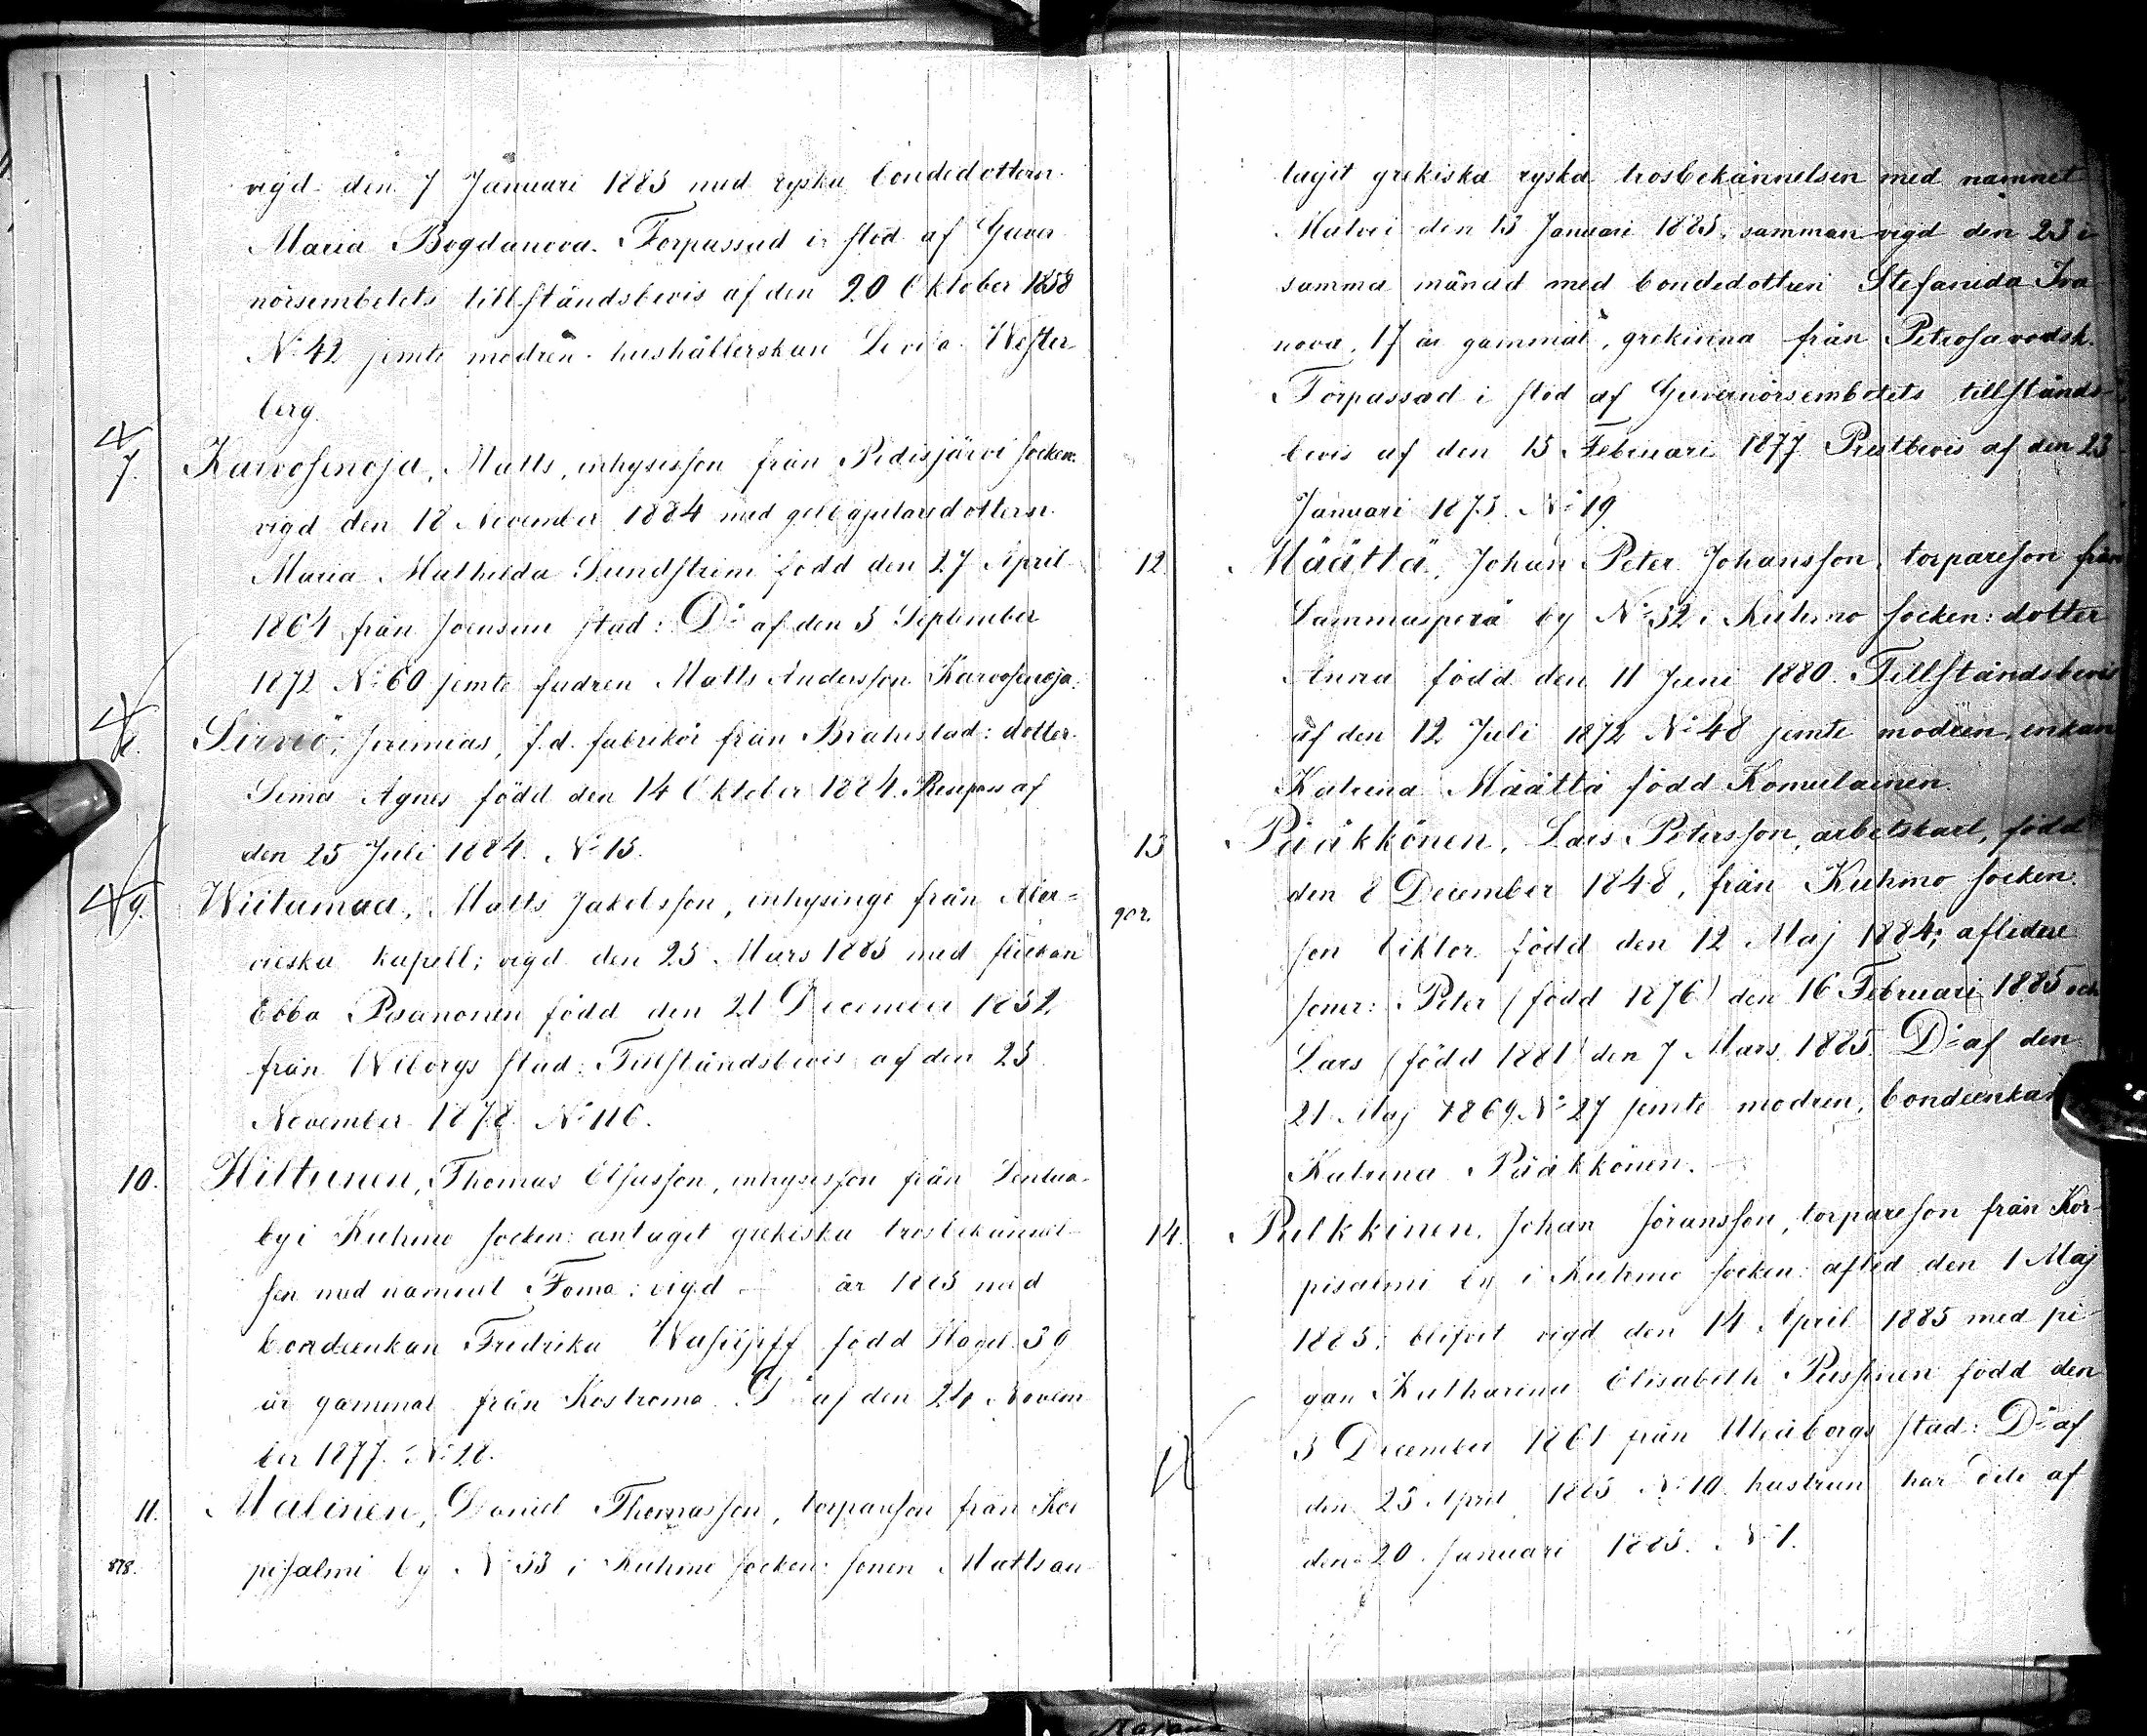 vigd den 7 Januari 1885 med ryska bondedottern
Maria Bogdanova. Förpassad i stöd af Guver
nörsembetets tillståndsbevis af den 20 Oktober 1858
No 42 jemte modren hushållerskan Lovisa Wester
berg.
7. Karvosenoja, Matts, inhysesson från Pidisjärvi socken:
vigd den 18 November 1884 med dottern
Maria Mathilda Sundström född den 27 April
1864 från Joensuu stad: Do af den 3 September
1872 No 60 jemte fadren Matts Andersson Karvosenoja.
8. Sirviö, Jeremias, f.d. fabrikör från Brahestad: dotter
Sima Agnes född den 14 Oktober 1884. Respass af
den 25 Juli 1884. No 15.
9. Wiitamaa, Matts Jakobsson, inhysinge från Mer=
vieska kapell; vigd den 25 Mars 1885 med flickan
Ebba Pisanonen född den 21 December 1852
från Wiborgs stad: Tillståndsbevis af den 25
November 1878 No 116.
10. Hiltunen, Thomas Eljasson, inhysesson från Lentua
by i Kuhmo socken: antagit grekiska trosbekännel
sen med namnet Foma: vigd — år 1885 med
bondeenkan Fredrika Wasiljeff född Hagel 39
år gammal från Kostroma. Do af den 24 Novem
ber 1877. No 28.
11. Malinen, Daniel Thomasson, torpareson från Kor
878. pisalmi by No 33 i Kuhmo socken: sonen Matts an
tagit grekiska ryska trosbekännelsen med namnet
Matvei den 13 Januari 1885, samman vigd den 23 i
samma månad med bondedottren Stefanida Iva
nova, 17 år gammal, grekinna från Petrosavodsk.
Förpassad i stöd af Guvernörsembetets tillstånds-
bevis af den 15 Februari 1877 Prestbevis af den 23
Januari 1873. No 19.
12. Määttä, Johan Peter Johansson, torpareson från
Lammasperä by No 32 i Kuhmo socken: dotter
Anna född den 11 Juni 1880. Tillståndsbevis
af den 12 Juli 1872 No 48 jemte modren, enkan
Katrina Määttä född Komulainen.
13 Pääkkönen, Lars Petersson, arbetskarl, född
den 8 December 1848, från Kuhmo socken:
902.
son Viktor född den 12 Maj 1884; aflidne
söner: Peter (född 1876) den 16 Februari 1885 och
Lars (född 1881) den 7 Mars 1885. Do af den
21 Maj 1869 No 27 jemte modren, bondeenkan
Katrina Pääkkönen.
14. Pulkkinen, Johan Göransson, torpareson från Kor
pisalmi by i Kuhmo socken: afled den 1 Maj
1885; blifvit vigd den 14 April 1885 med pi
gan Katharina Elisabeth Pussinen född den
3 December 1861 från Uleåborgs stad: Do af
den 25 April 1885 No 10. hustrun har dito af
den 20 Januari 1885. No 1.